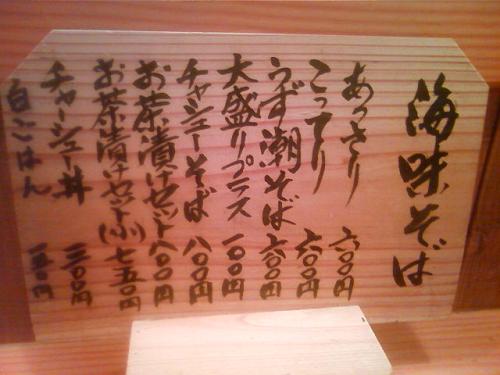 海味そば
あっさり 六〇〇円
こってり 六〇〇円
うず潮そば 六〇〇円
大盛りプラス 一〇〇円
チャーシューそば 八〇〇円
お茶漬けセット 八〇〇円
お茶漬けセット(小) 七五〇円
チャーシュー丼 三〇〇円
白ごはん 一五〇円